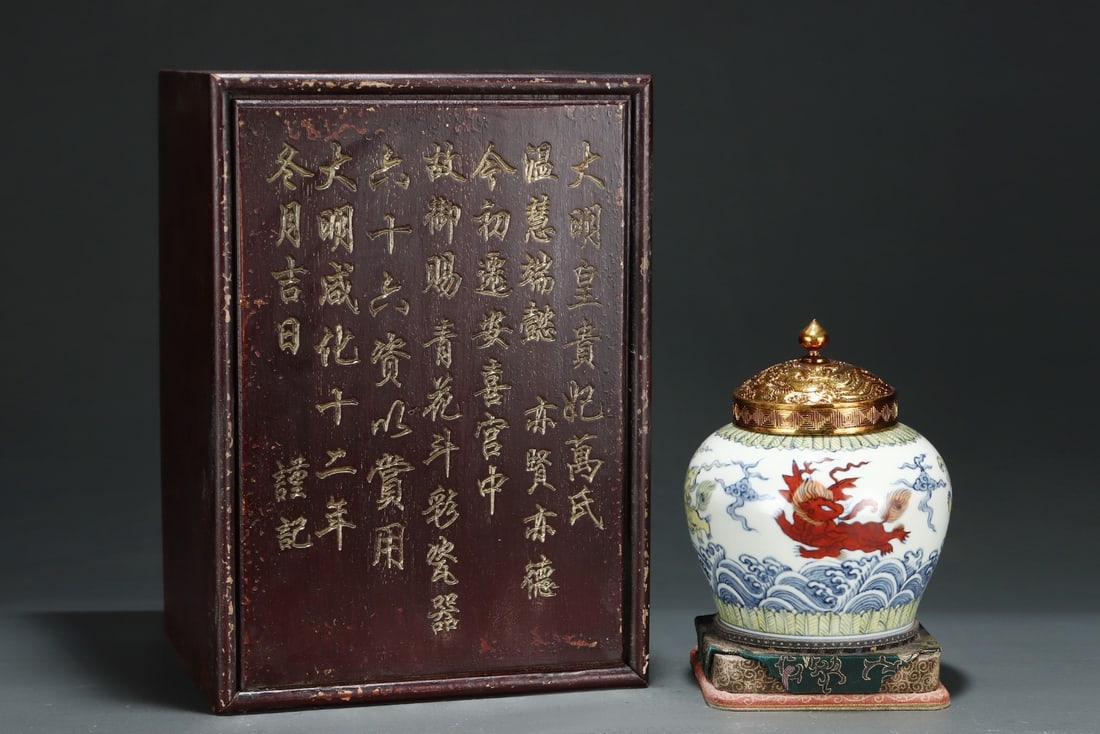 大明皇貴妃萬氏
溫慧端懿 亦賢亦德
今初遷安喜宮中
故御賜青花斗彩瓷器
六十六资以賞用
大明成化十二年
冬月吉日 謹記